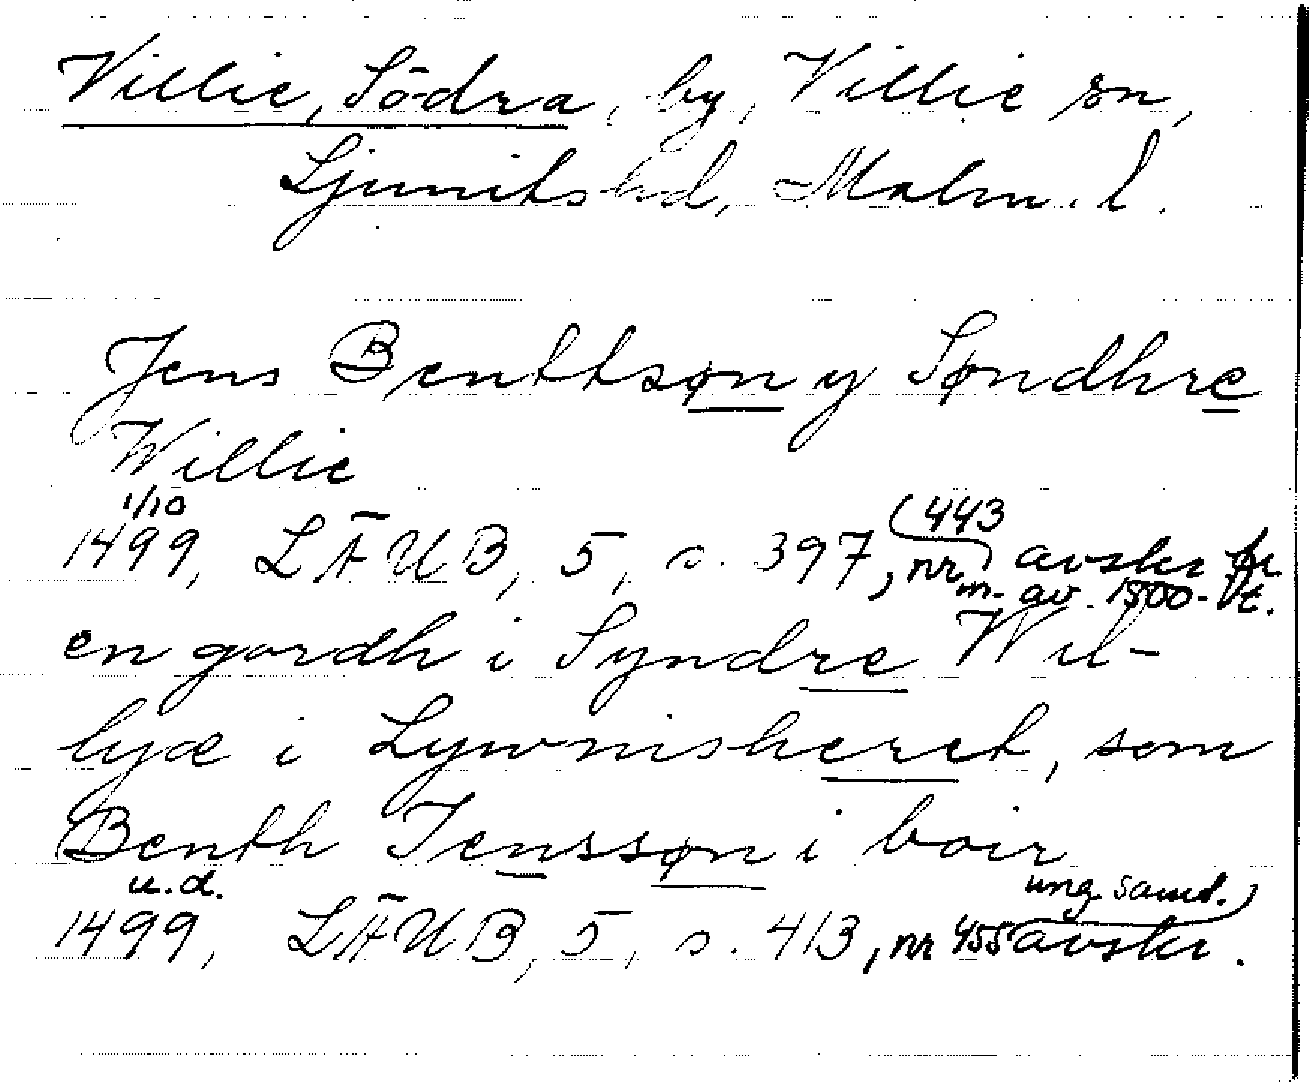 Villie, Södra, by, Villie sn,
Ljunits hd, Malm. l.
Jens Benttsøn y Søndhre
Willie
1/10
1499, LÄUB, 5, s. 397, nr 443 avskr fr
m. av 1500-t.
en gordh i Syndre Wil-
lyæ i Lywnisheret, som
Benth Jenssøn i boir
u.d.
1499, LÄUB, 5, s. 413, nr 455 ung. samt. avskr.